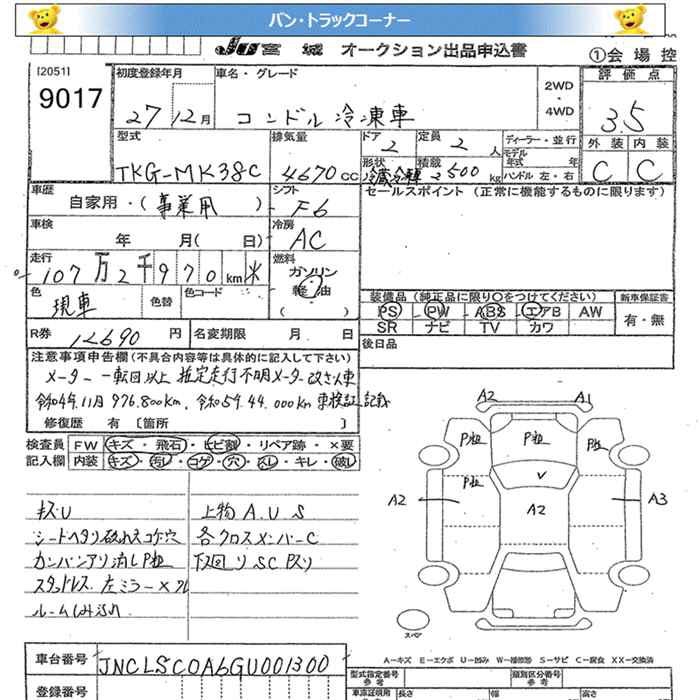 バン・トラックコーナー
JU宮城 オークション出品申込書
①会場控
[2051]
9017
初度登録年月
27 12月
車名・グレード
コンドル 冷凍車
2WD
・
4WD
評価点
3.5
型式
TKG-MK38C
排気量
4670cc
ドア
2
定員
2人
ディーラー・並行
モデル年式 年
ハンドル 左・右
形状
冷蔵冷凍
積載
2500kg
外装 内装
C C
車歴
自家用・(事業用)
シフト
F6
セールスポイント(正常に機能するものに限ります)
車検
年 月( 日)
冷房
AC
走行
107万2千970km ※
燃料
ガソリン
軽油
( )
色
現車
色替
色コード
装備品(純正品に限り○をつけてください)
PS PW ABS エアB AW
SR ナビ TV カワ
新車保証書
有・無
R券
12690円
名変期限 月 日
後日品
注意事項申告欄(不具合内容等は具体的に記入して下さい)
メーター一転回以上 推定走行不明メーター改ざん車
令和4年11月 976.800km, 令和5年.44.000km 車検証記載
修復歴 有〔箇所 〕
検査員 FW キズ・飛石・ヒビ割・リペア跡・×要
記入欄 内装 キズ・汚レ・コゲ・穴・スレ・キレ・破レ
キズU
シートヘタリ破れスコゲ穴
カンバンアリ消しP粒
スタッドレス 左ミラー×ワレ
ルームしみ汚れ
上物A.U S
各クロスメンバーC
下回りSC Pヌリ
A2 A1
P粒 P粒 P粒
P粒 V
A2 A2 A3
スペア
車台番号 JNCLSC0A6GU001300
登録番号
A-キズ E-エクボ U-凹み W-補修跡 S-サビ C-腐食 XX-交換済
型式指定番号
参考
類別区分番号
参考
車庫証明用
参考
長さ
幅
高さ